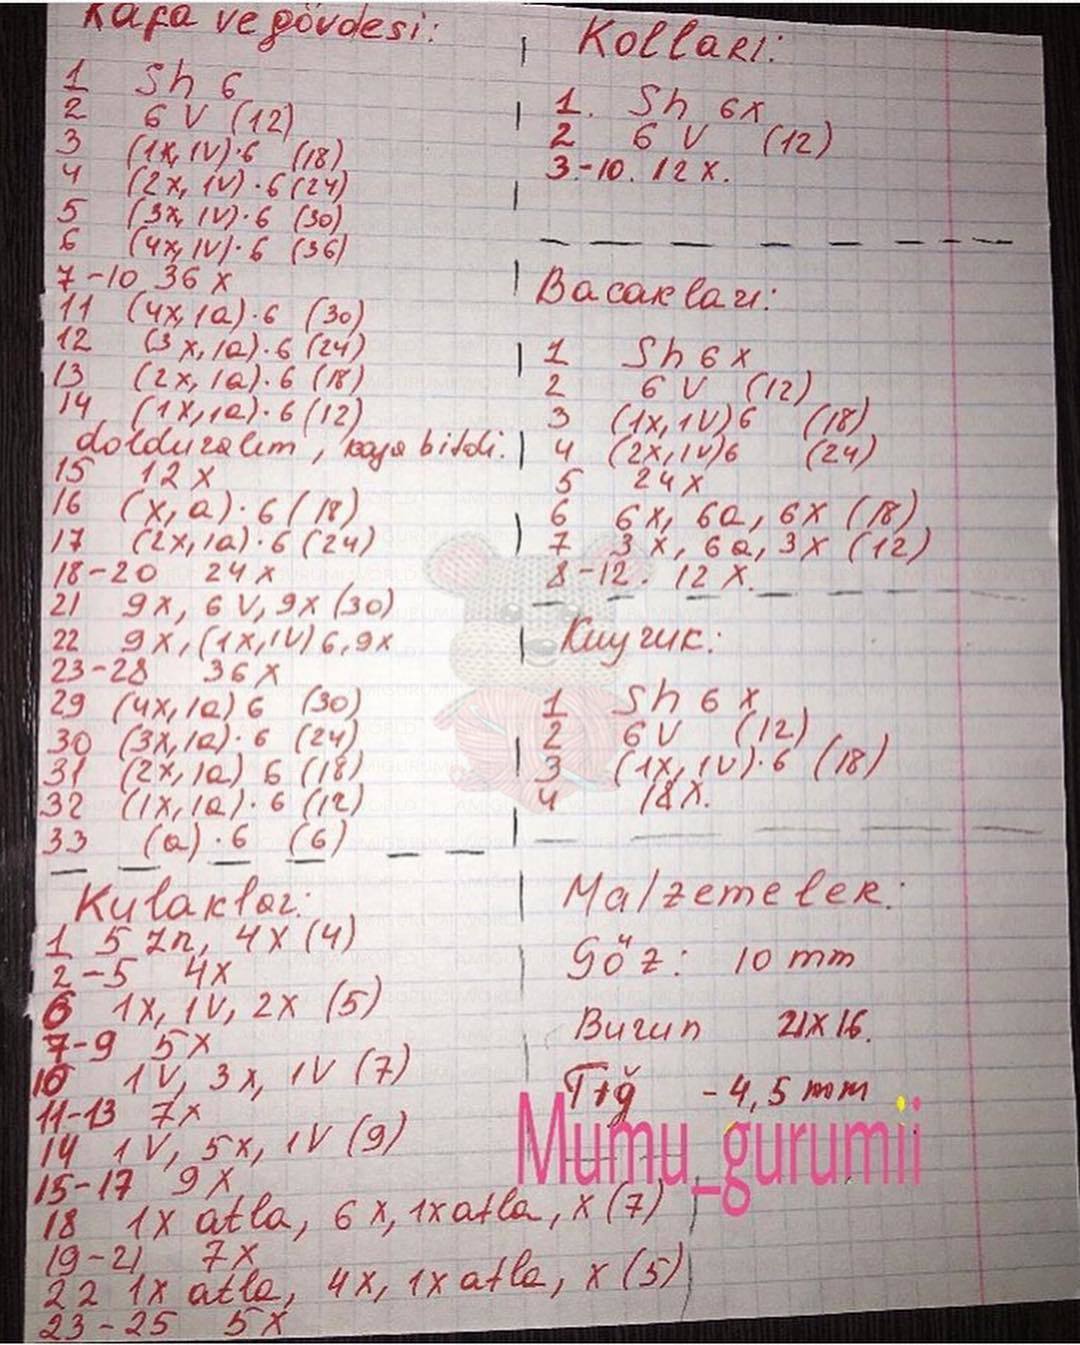 Kafa ve gövdesi:
1 Sh 6
2 6 V (12)
3 (1x, 1V)·6 (18)
4 (2x, 1V)·6 (24)
5 (3x, 1V)·6 (30)
6 (4x, 1V)·6 (36)
7-10 36 x
11 (4x, 1a)·6 (30)
12 (3x, 1a)·6 (24)
13 (2x, 1a)·6 (18)
14 (1x, 1a)·6 (12)
dolduralım, kafa bitdi.
15 12 x
16 (x, a)·6 (18)
17 (2x, 1a)·6 (24)
18-20 24 x
21 9x, 6 V, 9x (30)
22 9x, (1x, 1V) 6, 9x
23-28 36 x
29 (4x, 1a) 6 (30)
30 (3x, 1a)·6 (24)
31 (2x, 1a) 6 (18)
32 (1x, 1a)·6 (12)
33 (a)·6 (6)
Kulaklar:
1 5 zn, 4x (4)
2-5 4x
6 1x, 1V, 2x (5)
7-9 5x
10 1V, 3x, 1V (7)
11-13 7x
14 1V, 5x, 1V (9)
15-17 9x
18 1x atla, 6x, 1x atla, x (7)
19-21 7x
22 1x atla, 4x, 1x atla, x (5)
23-25 5x
Kolları:
1. Sh 6x
2 6 V (12)
3-10. 12 x.
Bacakları:
1 Sh 6 x
2 6 V (12)
3 (1x, 1V) 6 (18)
4 (2x, 1V) 6 (24)
5 24 x
6 6x, 6a, 6x (18)
7 3x, 6a, 3x (12)
8-12. 12 x.
Kuyruk:
1 Sh 6 x
2 6 V (12)
3 (1x, 1V)·6 (18)
4 18x.
Malzemeler:
Göz: 10 mm
Burun 21x16.
Tığ - 4,5 mm
Mumu_gurumii